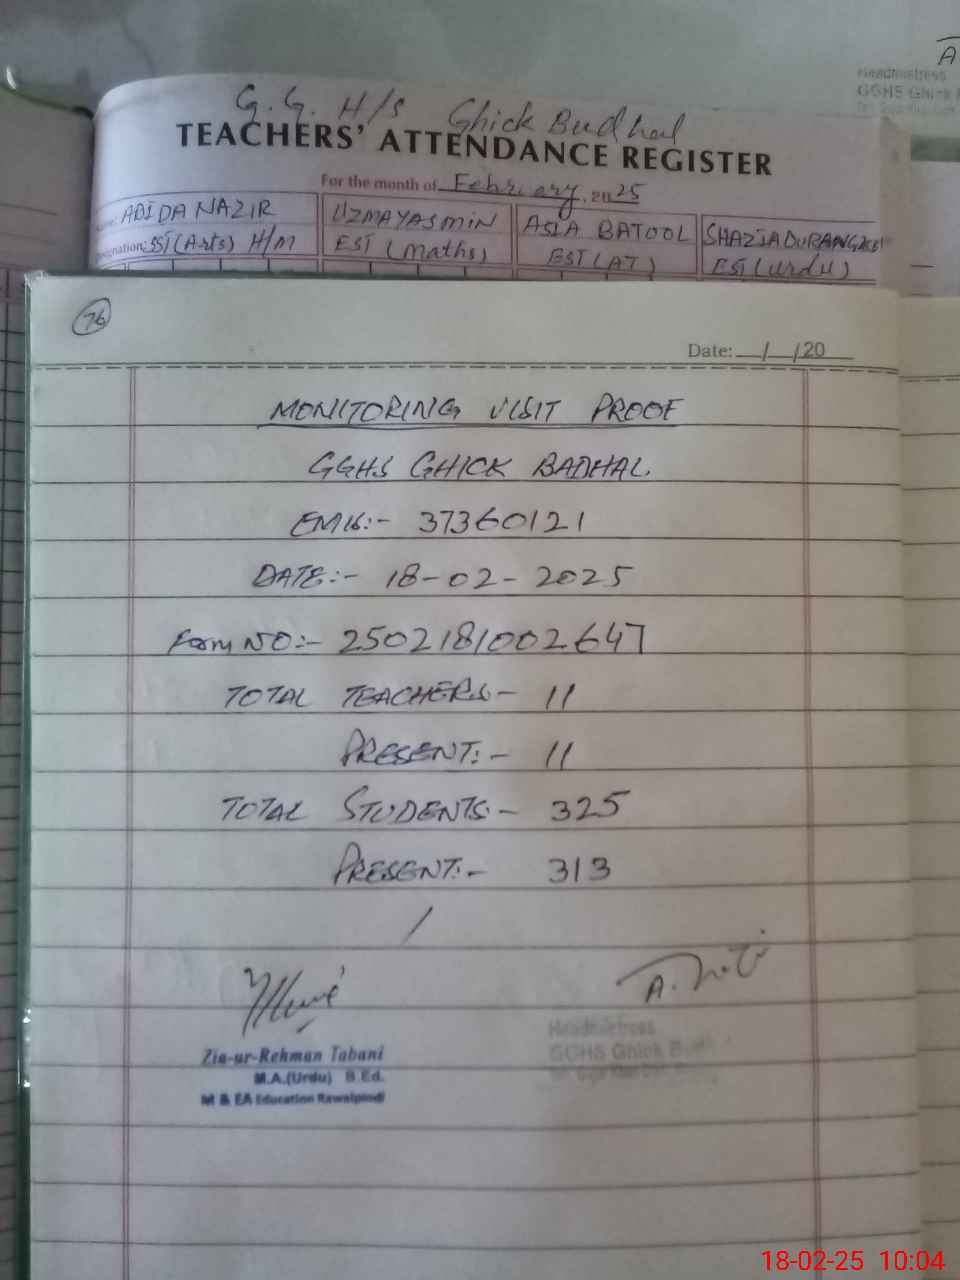 A
Headmistress
GGHS Ghick
G.G. H/S Ghick Budhal
TEACHERS' ATTENDANCE REGISTER
For the month of February, 2025
ABIDA NAZIR
SST (Arts) H/M
UZMA YASMIN
EST (Maths)
ASIA BATOOL
EST (AT)
SHAZIA DURANG
EST (Urdu)
76
Date: / /20
MONITORING VISIT PROOF
GGHS GHICK BADHAL.
EMIS:- 37360121
DATE:- 18-02-2025
Form NO:- 2502181002647
TOTAL TEACHERS- 11
PRESENT:- 11
TOTAL STUDENTS- 325
PRESENT:- 313
A.
Zia-ur-Rehman Tabani
M.A.(Urdu) B.Ed.
M & EA Education Rawalpindi
Headmistress
GGHS Ghick
18-02-25 10:04